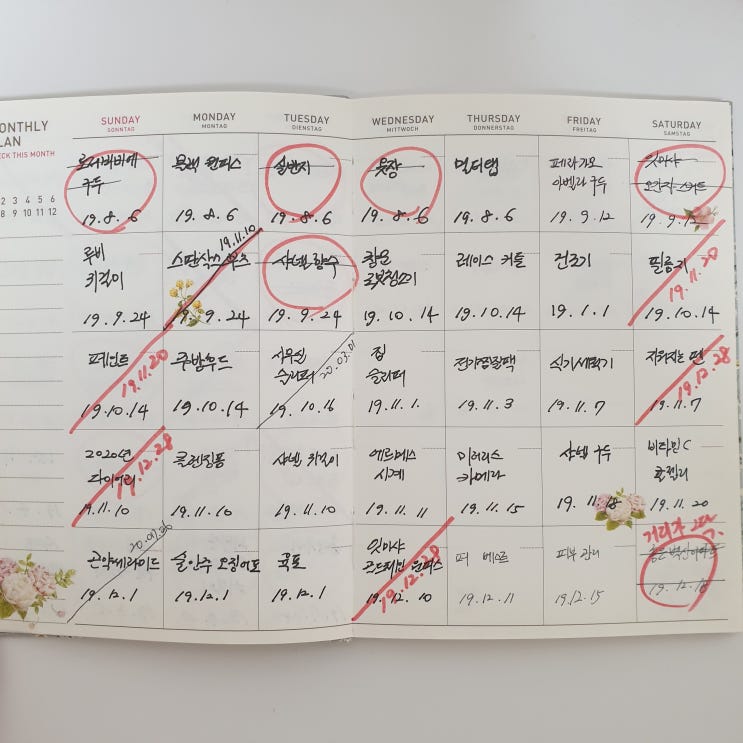 MONTHLY
PLAN
CHECK THIS MONTH
2 3 4 5 6
8 9 10 11 12
SUNDAY MONDAY TUESDAY WEDNESDAY THURSDAY FRIDAY SATURDAY
SONNTAG MONTAG DIENSTAG MITTWOCH DONNERSTAG FREITAG SAMSTAG
로저비비에
구두
19.8.6
블랙 원피스
19.8.6
실반지
19.8.6
옷장
19.8.6
멀티탭
19.8.6
페라가모
아벨라 구두
19.9.12
잇미샤
스커트
19.9.12
루비
귀걸이
19.9.24
19.11.10
19.9.24
샤넬 향수
19.9.24
창문
로봇청소기
19.10.14
레이스 커튼
19.10.14
건조기
19.1.1
필름지
19.11.20
19.10.14
페인트
19.11.20
19.10.14
주방후드
19.10.14
사무실
슬리퍼
20.03.01
19.10.16
집
슬리퍼
19.11.1.
전기찜질팩
19.11.3
식기세척기
19.11.7
지워지는 펜
19.12.28
19.11.7
2020년
다이어리
19.12.28
19.11.10
클렌징폼
19.11.10
샤넬 귀걸이
19.11.10
에르메스
시계
19.11.11
미러리스
카메라
19.11.15
샤넬 구두
19.11.18
비타민C
19.11.20
곤약세라이드
19.12.1
술안주 오징어포
19.12.1
19.12.1
잇미샤
원피스
19.12.28
19.12.10
퍼 베스트
19.12.11
피부 관리
19.12.15
19.12.18